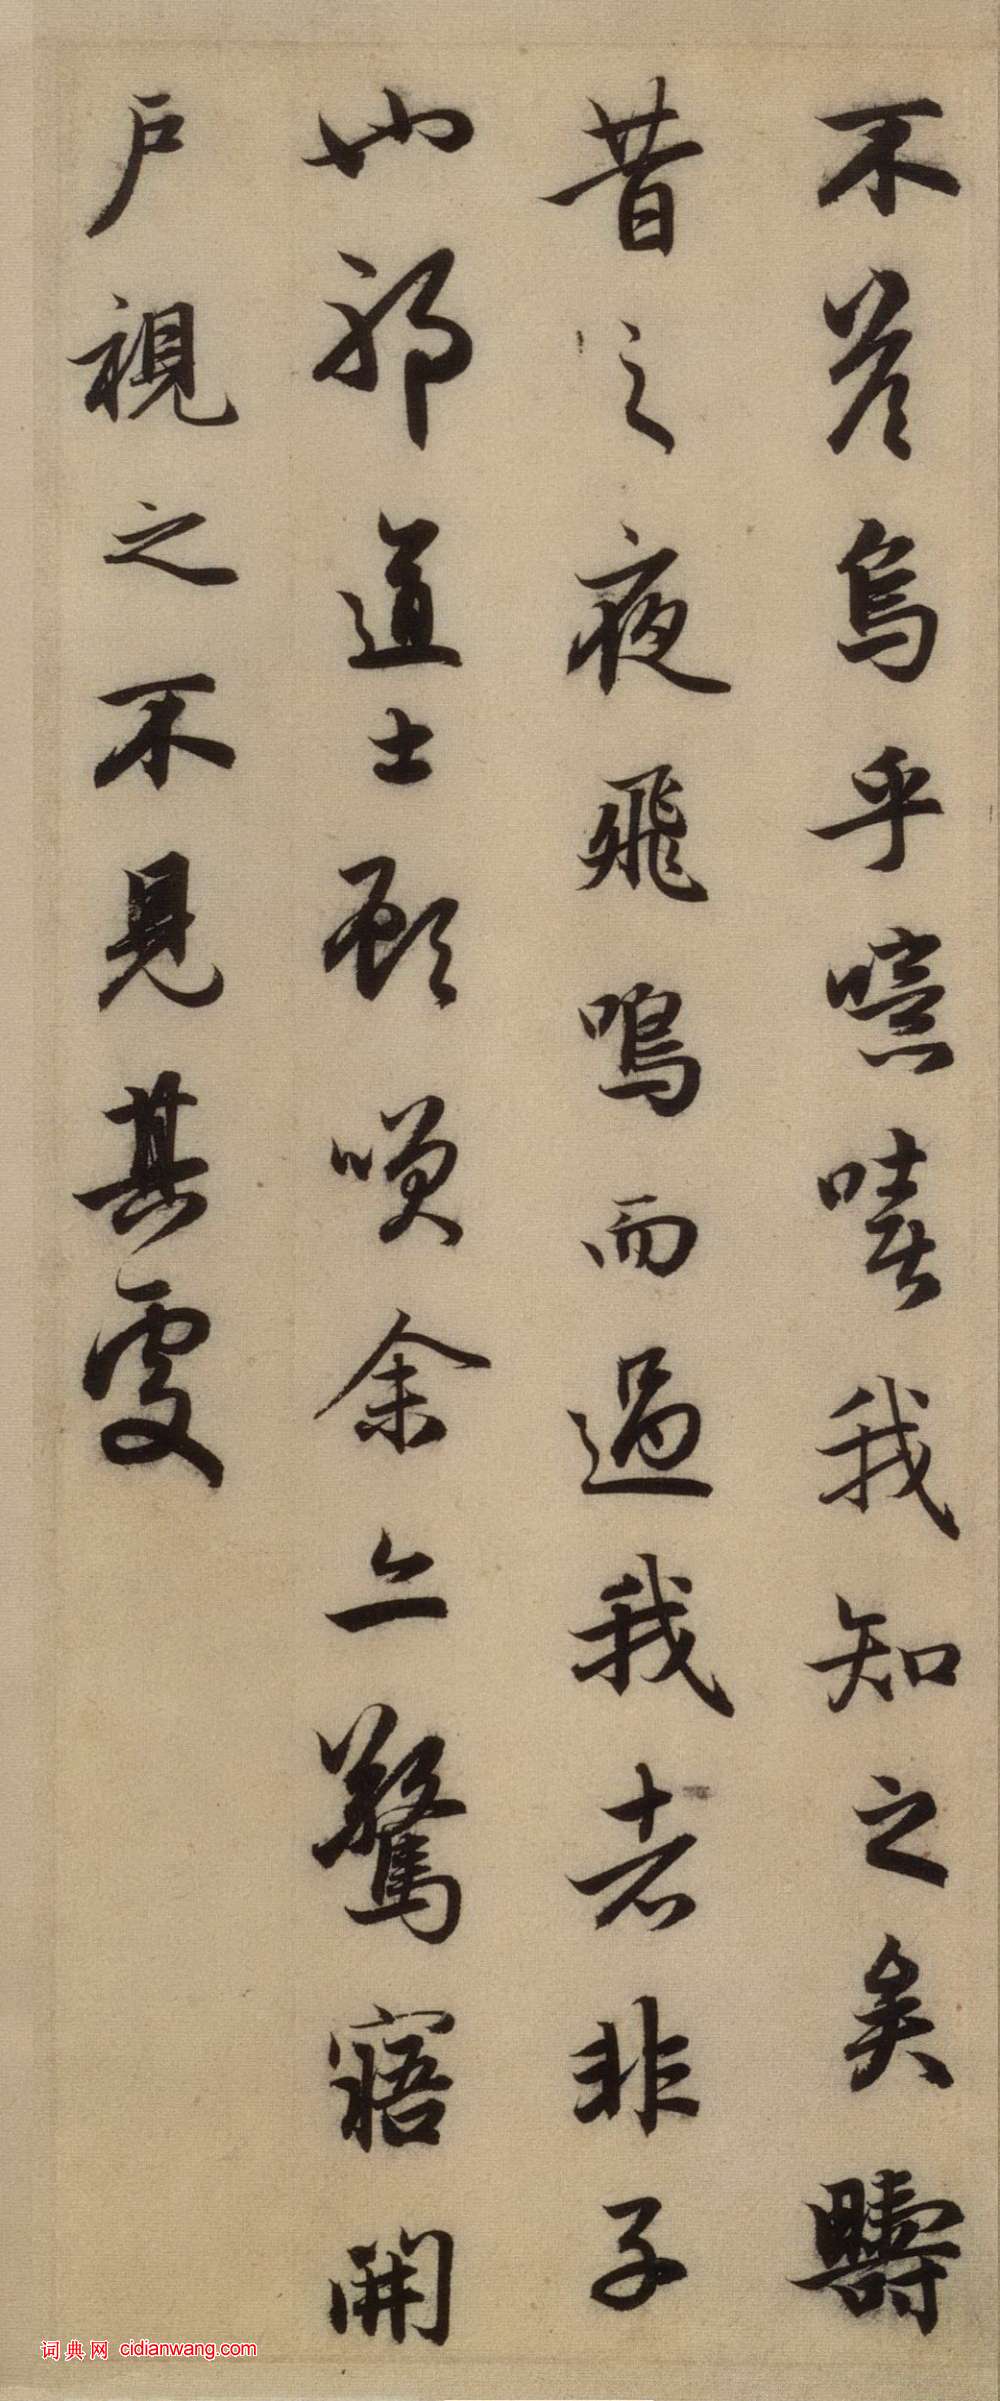 不答烏乎噫嘻我知之矣疇
昔之夜飛鳴而過我者非子
也邪道士顾唉余亦驚寤開
戶視之不見其處
词典网 cidianwang.com